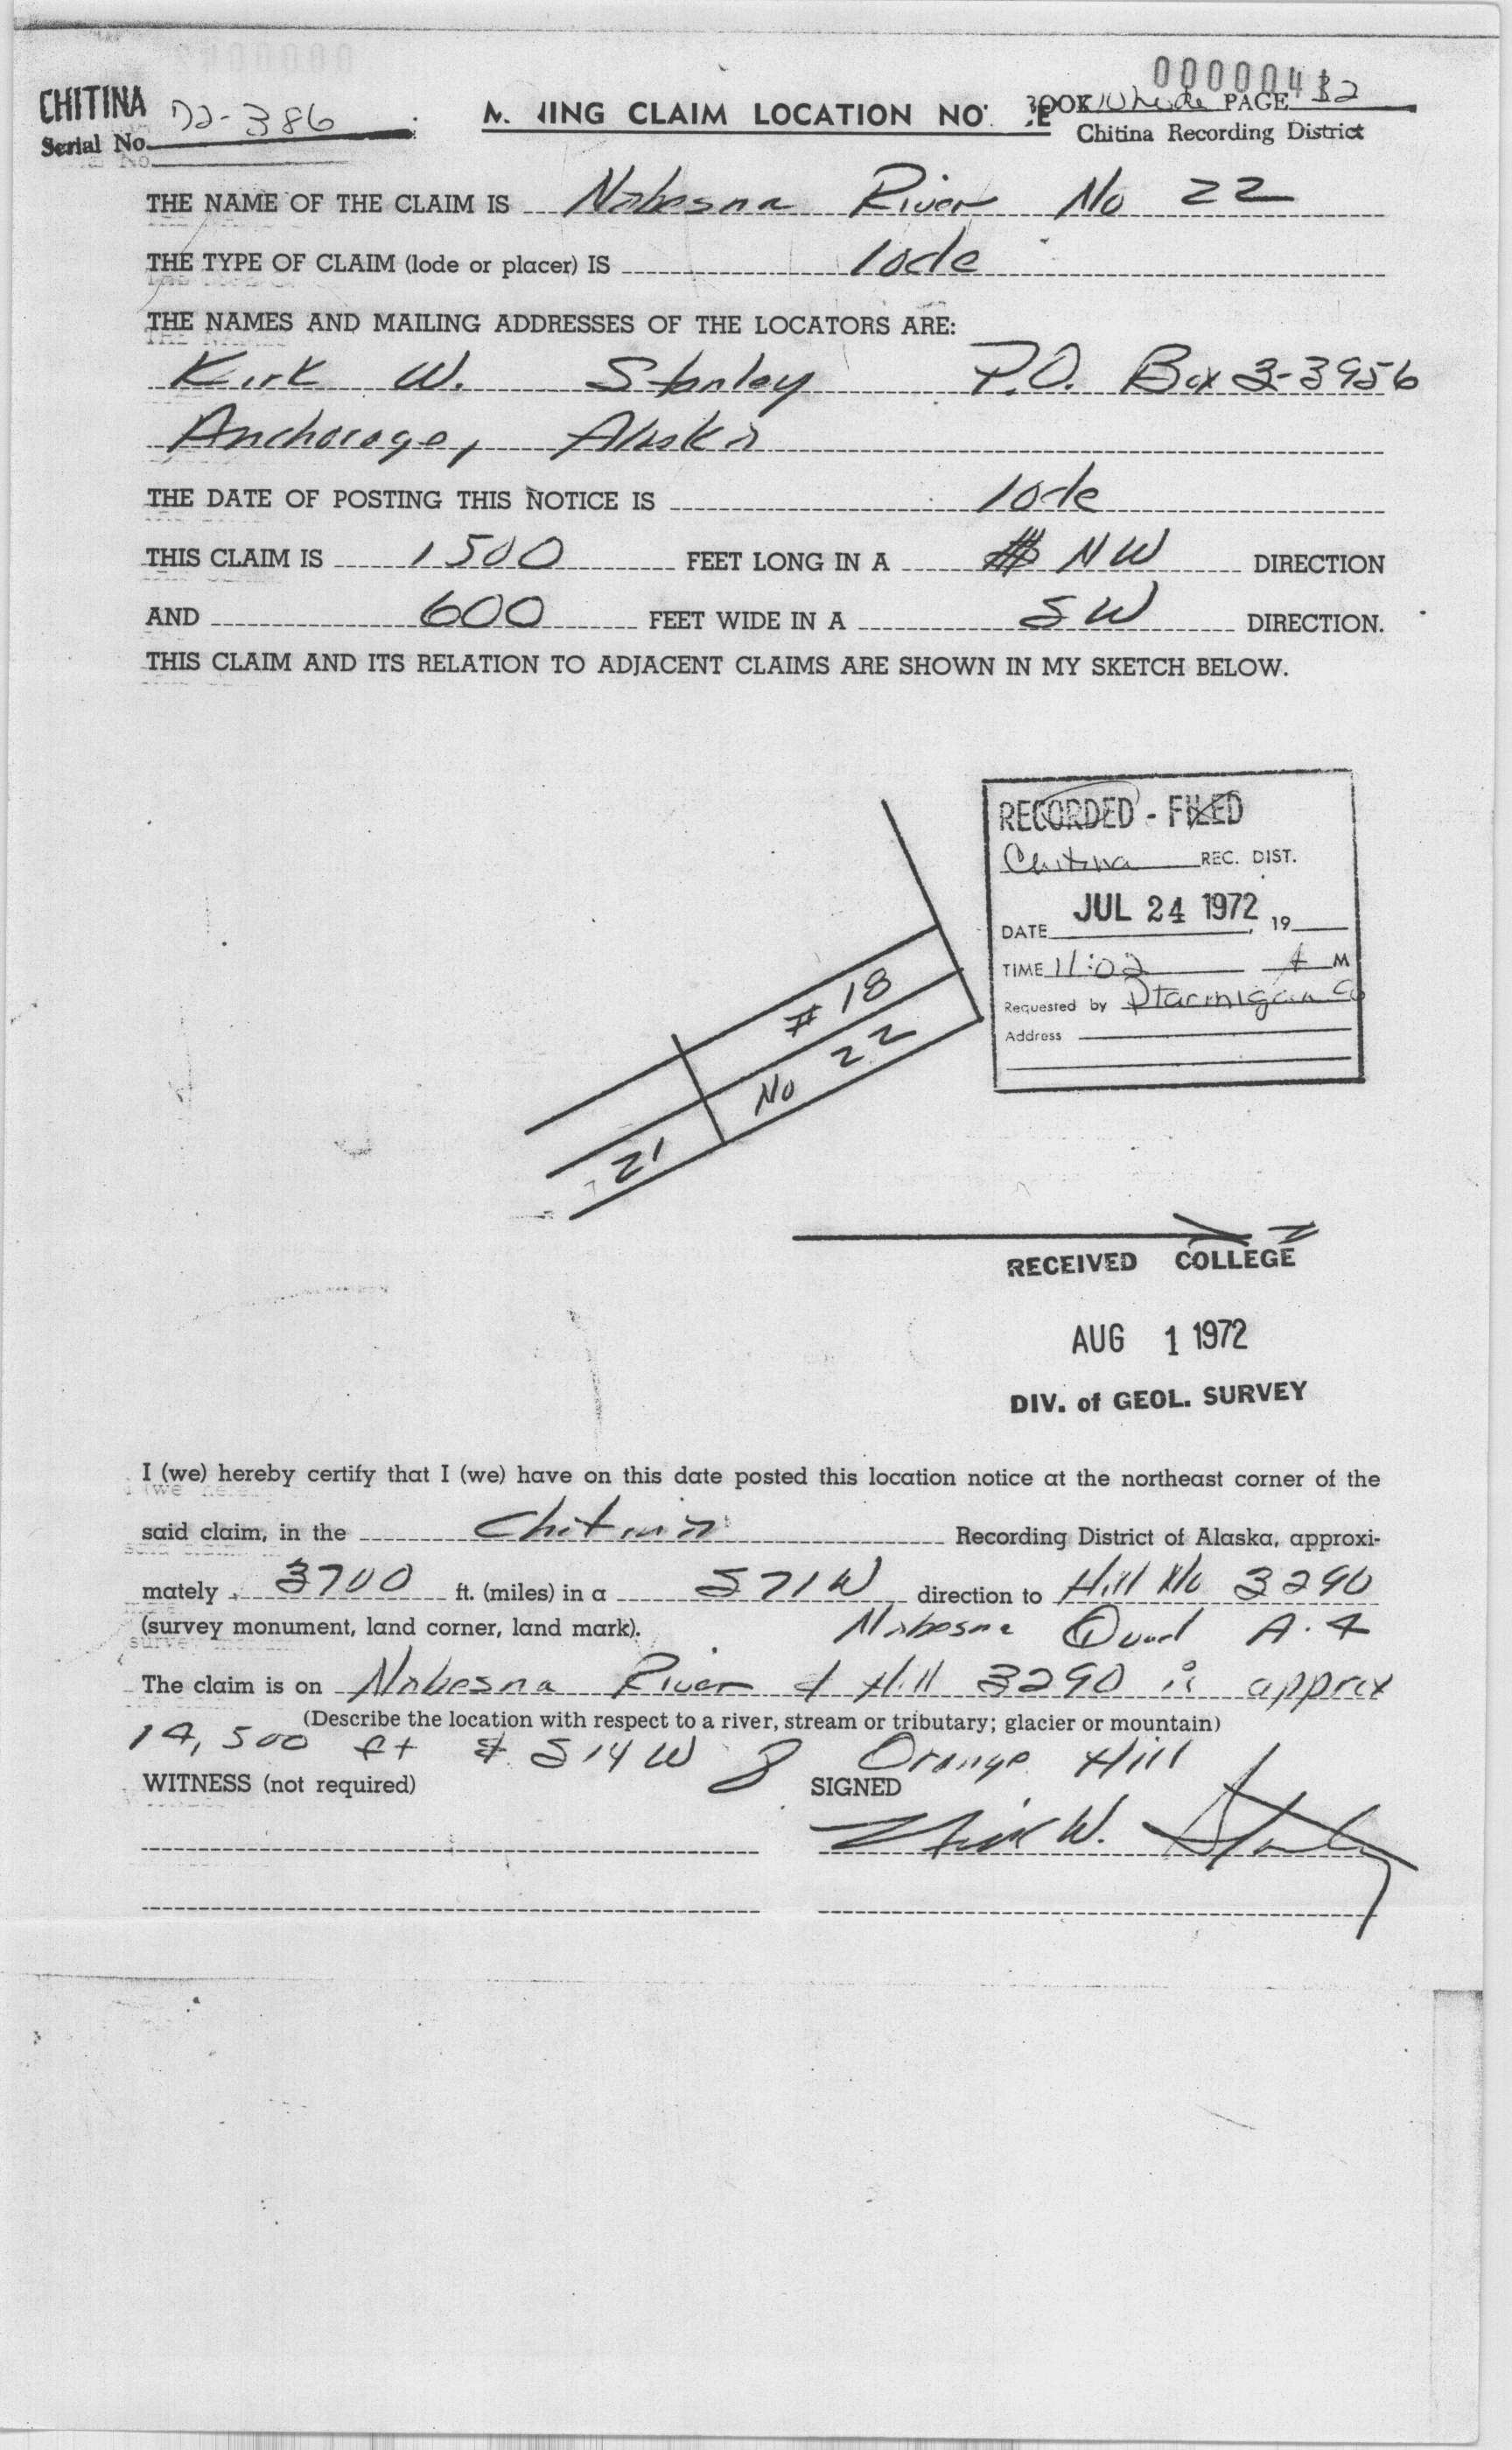 CHITINA
Serial No. 72-386
M. NING CLAIM LOCATION NO. E
BOOK PAGE 32
Chitina Recording District
THE NAME OF THE CLAIM IS Nabesna River No 22
THE TYPE OF CLAIM (lode or placer) IS lode
THE NAMES AND MAILING ADDRESSES OF THE LOCATORS ARE:
Kirk W. Stanley P.O. Box 3-3956
Anchorage, Alaska
THE DATE OF POSTING THIS NOTICE IS lode
THIS CLAIM IS 1500 FEET LONG IN A NW DIRECTION
AND 600 FEET WIDE IN A SW DIRECTION.
THIS CLAIM AND ITS RELATION TO ADJACENT CLAIMS ARE SHOWN IN MY SKETCH BELOW.
RECORDED - FILED
Chitina REC. DIST.
DATE JUL 24 1972, 19
TIME 11:02 A M
Requested by Ptarmigan Co
Address
# 18
No 22
21
N
RECEIVED COLLEGE
AUG 1 1972
DIV. of GEOL. SURVEY
I (we) hereby certify that I (we) have on this date posted this location notice at the northeast corner of the
said claim, in the Chitina Recording District of Alaska, approxi-
mately 3700 ft. (miles) in a S71W direction to Hill No 3290
(survey monument, land corner, land mark). Nabesna Quad A.4
The claim is on Nabesna River & Hill 3290 is approx
(Describe the location with respect to a river, stream or tributary; glacier or mountain)
14,500 ft S14W of Orange Hill
WITNESS (not required) SIGNED
Kirk W. Stanley